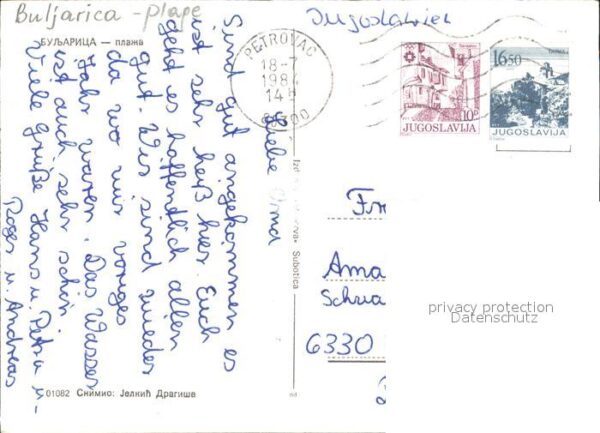 Buljarica - plage
БУЉАРИЦА — плажа
Jugoslawien
PETROVAC
18-7
1984
14H
10
JUGOSLAVIJA
16.50
JUGOSLAVIJA
Liebe Oma
Sind gut angekommen es
ist sehr heiß hier. Euch
geht es hoffentlich allen
gut. Wir sind wieder
da wo wir voriges
Jahr waren. Das Wasser
ist auch sehr schön.
Viele Grüße Hans u. Petra u-
Roger u. Andreas
Subotica
Fr
Ama
Schwa
6330
privacy protection
Datenschutz
01082 Снимио: Јелкић Драгише